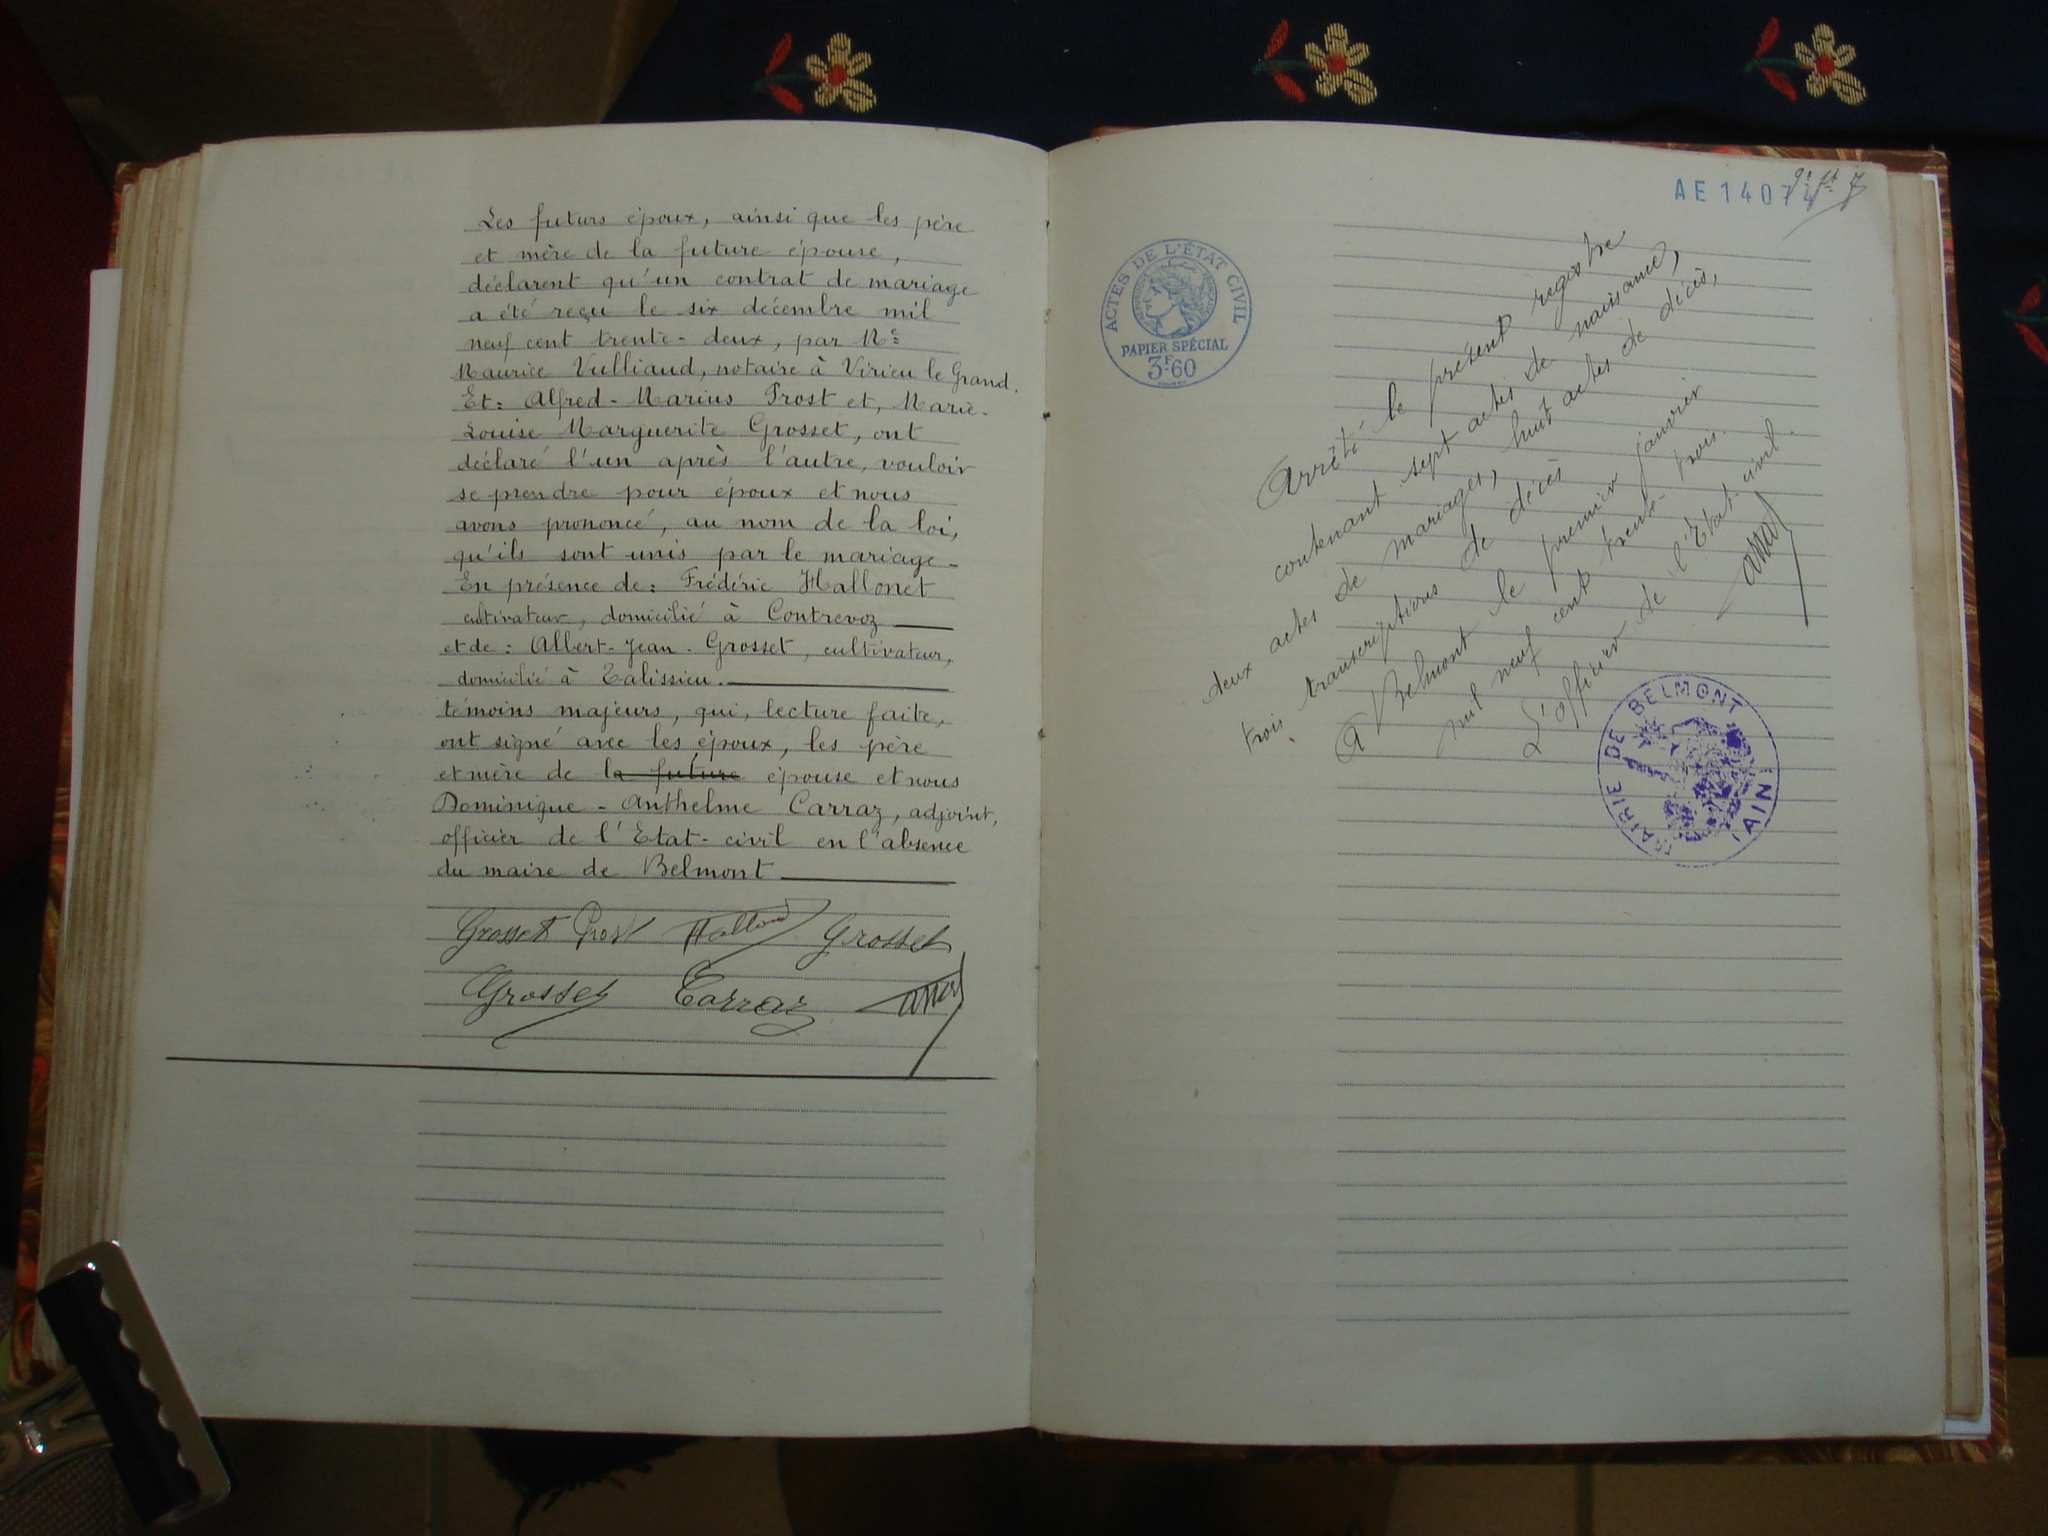 Les futurs époux, ainsi que les père
et mère de la future épouse,
déclarent qu'un contrat de mariage
a été reçu le six décembre mil
neuf cent trente-deux, par Me
Maurice Vulliaud, notaire à Virieu le Grand.
Et: Alfred-Marius Prost et, Marie-
Louise Marguerite Grosset, ont
déclaré l'un après l'autre, vouloir
se prendre pour époux et nous
avons prononcé, au nom de la loi,
qu'ils sont unis par le mariage-
En présence de: Frédéric Hallonet
cultivateur, domicilié à Contrevoz
et de: Albert-Jean-Grosset, cultivateur,
domicilié à Talissieu.
témoins majeurs, qui, lecture faite,
ont signé avec les époux, les père
et mère de la future épouse et nous
Dominique-Anthelme Carraz, adjoint,
officier de l'Etat-civil en l'absence
du maire de Belmont
Grosset Prost Hallonet Grosset
Grosset Carraz
AE 1407
7
ACTES DE L'ÉTAT CIVIL
PAPIER SPÉCIAL
3F60
Arrêté le présent registre
contenant sept actes de naissance,
deux actes de mariages, huit actes de décès,
trois transcriptions de décès
A Belmont le premier janvier
mil neuf cent trente-trois.
L'officier de l'Etat-civil.
MAIRIE DE BELMONT
(AIN)